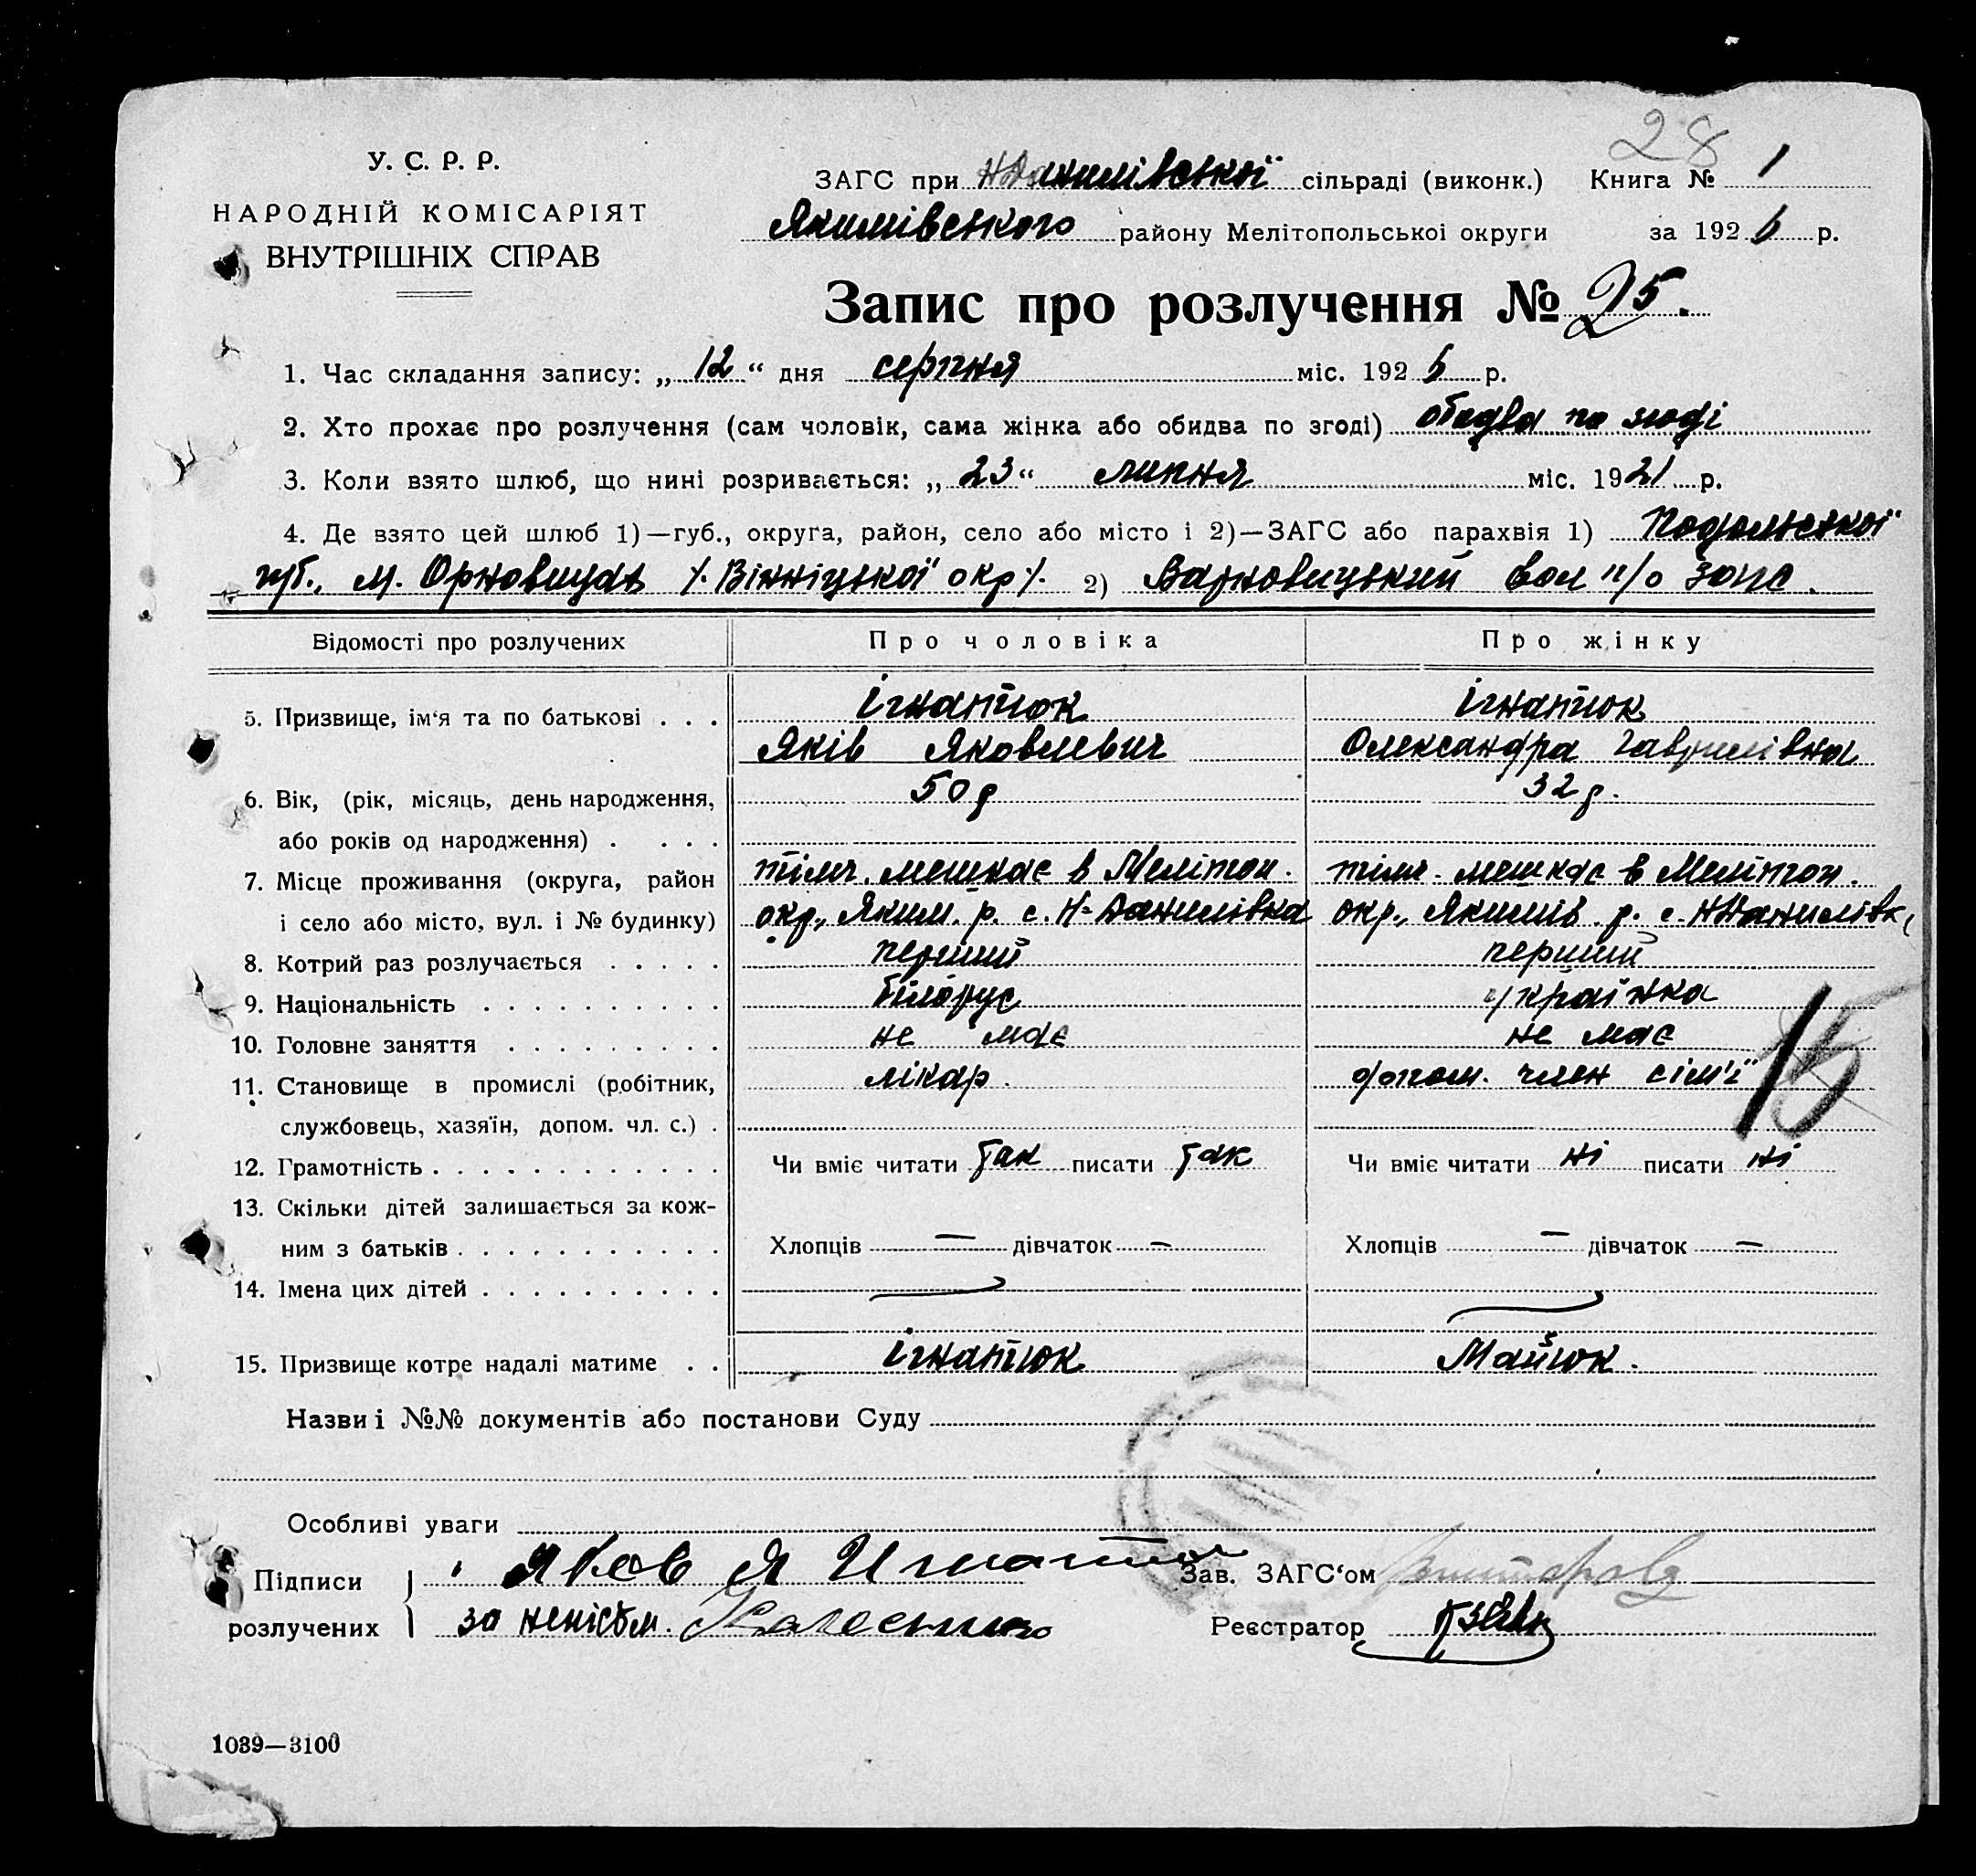 28
У. С. Р. Р.
НАРОДНІЙ КОМІСАРІЯТ
ВНУТРІШНІХ СПРАВ
ЗАГС при НДанилівської сільраді (виконк.) Книга № 1
Якимівського району Мелітопольської округи за 192 р.
Запис про розлучення № 25.
1. Час складання запису: „ 12 “ дня серпня міс. 192 р.
2. Хто прохає про розлучення (сам чоловік, сама жінка або обидва по згоді) обидва по згоді
3. Коли взято шлюб, що нині розривається: „ 23 “ липня міс. 1921 р.
4. Де взято цей шлюб 1)—губ., округа, район, село або місто і 2)—ЗАГС або парахвія 1) Подольської
губ., м. /. Вінніцької окр /. 2) вол п/о
Відомості про розлучених
Про чоловіка
Про жінку
5. Призвище, ім‘я та по батькові . . .
Ігнатюк
Яків Яковлевич
Ігнатюк
Олександра Гаврилівна
6. Вік, (рік, місяць, день народження,
або років од народження) . . . .
50 р
32 р.
7. Місце проживання (округа, район
і село або місто, вул. і № будинку)
тімч. мешкає в Мелітоп.
окр., Яким. р. с. Н-Данилівка
тімч. мешкає в Мелітоп.
окр., Якимів. р. с. НДанилівк
8. Котрий раз розлучається . . . . .
перший
перший
9. Національність . . . . . . . . . .
білорус
українка
10. Головне заняття . . . . . . . . .
не має
не має
11. Становище в промислі (робітник,
службовець, хазяїн, допом. чл. с.) .
лікар.
допом. член сім'ї
15
12. Грамотність . . . . . . . . . . . .
Чи вміє читати так писати так
Чи вміє читати ні писати ні
13. Скільки дітей залишається за кож-
ним з батьків . . . . . . . . . . .
Хлопців — дівчаток —
Хлопців — дівчаток —
14. Імена цих дітей . . . . . . . . . .
15. Призвище котре надалі матиме . .
Ігнатюк
Майюк.
Назви і №№ документів або постанови Суду
Особливі уваги
Підписи
розлучених
Яков Я
за неписьм.
Зав. ЗАГС‘ом
Реєстратор
1039—3100